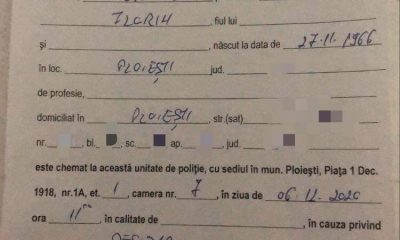 FLORIN, fiul lui
și, născut la data de 27.11.1966
în loc. PLOIEȘTI jud.
de profesie,
domiciliat în PLOIEȘTI, str.(sat)
nr., bl., sc. ap., jud.
este chemat la această unitate de poliție, cu sediul în mun. Ploiești, Piața 1 Dec.
1918, nr.1A, et. 1, camera nr. 7, în ziua de 06.12.2020
ora 11⁰⁰ în calitate de, în cauza privind